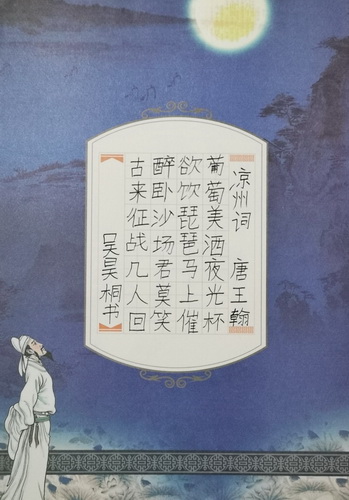 凉州词 唐王翰
葡萄美酒夜光杯
欲饮琵琶马上催
醉卧沙场君莫笑
古来征战几人回
吴昊桐书